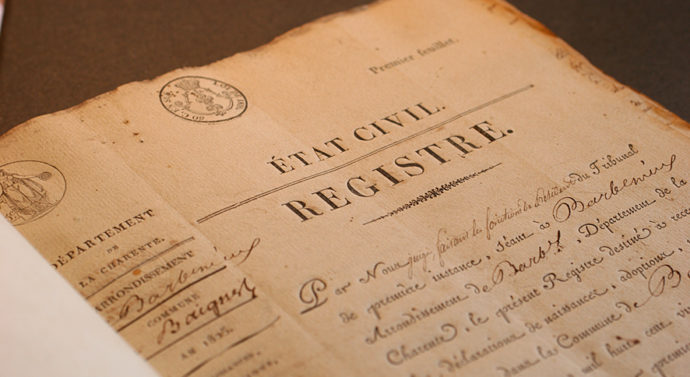 Premier feuillet.
ÉTAT CIVIL.
REGISTRE.
DÉPARTEMENT
DE
LA CHARENTE.
ARRONDISSEMENT
Barbezieux
COMMUNE
AN 182
Par Nous juge faisant les fonctions de président du Tribunal
de première instance, séant à Barbezieux
Arrondissement de Barb.x, Département de la
Charente, le présent Registre destiné à rece
déclarations de naissance, adoptions,
dans la Commune de B
mil huit cent vi
premier